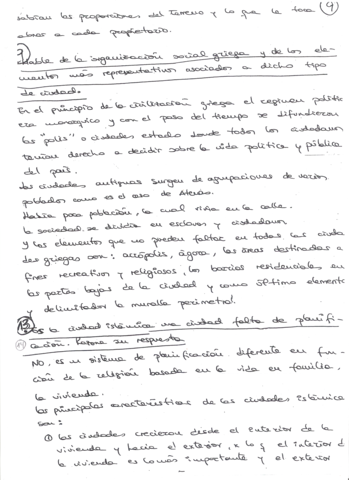 sabían las proporciones del terreno y lo que le toca (9)
ahora a cada propietario.
7) Hable de la organización social griega y de los ele-
mentos más representativos asociados a dicho tipo
de ciudad.
En el principio de la civilización griega el regimen politic
era monárquico y con el paso del tiempo se difundieron
las "polis" o ciudades estado donde todos los ciudadanos
tenían derecho a decidir sobre la vida política y pública
del país.
Las ciudades antiguas surgen de agrupaciones de varios
poblados como es el caso de Atenas.
Había poca población, la cual vivía en la calle.
La sociedad se dividía en esclavos y ciudadanos
y los elementos que no pueden faltar en todas las ciuda
des griegas son: acrópolis, ágora, las áreas destinadas a
fines recreativos y religiosos, los barrios residenciales en
las partes bajas de la ciudad y como último elemento
y delimitador la muralla perimetral.
la ciudad islámica una ciudad falta de planifi-
cación. Razone su respuesta
NO, es un sistema de planificación diferente en fun-
ción de la religión basada en la vida en familia,
la vivienda.
las principales características de las ciudades islámicas
son:
① las ciudades crecieron desde el interior de la
vivienda y hacia el exterior, x lo q el interior d
la vivienda es lo más importante y el exterior